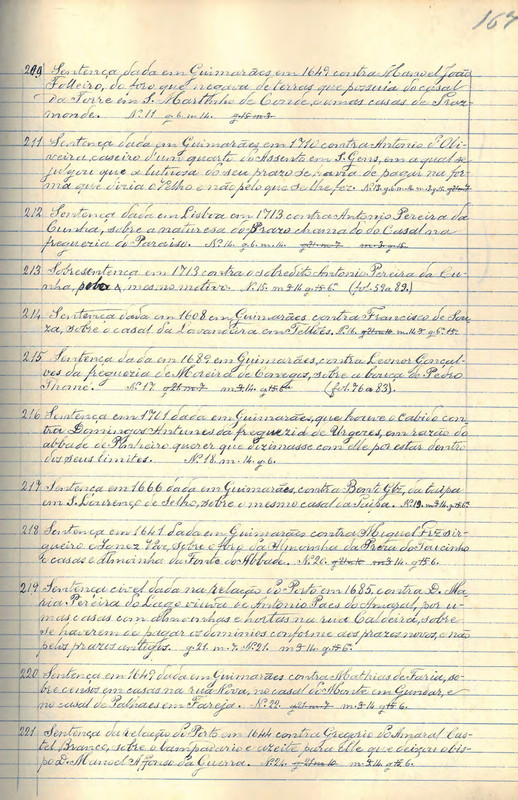 167
209 Sentença dada em Guimarães em 1649 contra Manoel João
Folleiro, do foro que negava de terras que possuia do casal
da Torre em S. Martinho de Conde, e umas casas de Traz
monde. N.º 11 g. 6. m. 14.
211 Sentença dada em Guimarães em 1710 contra Antonio d'Oli-
veira, caseiro d'um quarto do Assento em S. Gens, em a qual se
julgou que a luctuosa do seu prazo se havia de pagar na for
ma que dizia o velho e não pelo que se lhe fez.
212 Sentença dada em Lisboa em 1713 contra Antonio Pereira da
Cunha, sobre a naturesa do Prazo chamado do Casal na
freguezia do Paraiso. N.º 14. g. 6. m. 14. g 21 m 7 m 3 g 15
213 Sobresentença em 1713 contra o sobredito Antonio Pereira da Cu-
nha, pelo mesmo motivo. N.º 15. m 14 g 6. (fol. 59 a 89.)
214 Sentença dada em 1608 em Guimarães, contra Francisco de Sou
za, sobre o casal da Lavandeira em Telldes. N.º 16.
215 Sentença dada em 1689 em Guimarães, contra Leonor Gonçal-
ves da freguezia de Moreira de Conegos, sobre a bouça de Pedro
N.º 17 g 21 m 7 m 14 (fol. 76 a 83).
216 Sentença em 1761 dada em Guimarães, que houve o Cabido con
tra Domingos Antunes da freguezia de Urgezes, em razão do
abbade de Pinheiro querer que dizimasse com elle por estar dentro
dos seus limites. N.º 18. m. 14. g. 6.
217 Sentença em 1666 dada em Guimarães, contra Bento Glz, da taipa
em S. Lourenço de Selho, sobre o mesmo casal da Taipa. N.º 19. m 14 g 6
218 Sentença em 1641 dada em Guimarães contra Miguel Frz sir-
gueiro e Ignez Vaz, sobre o foro da Almoinha da Preza do Toucinho
e casas e almoinha da Fonte do Abbade. N.º 20. m 14 g 6.
219 Sentença civel dada na Relação do Porto em 1685, contra D. Ma
ria Pereira do Lago viuva de Antonio Paes do Amaral, por u-
mas casas com almoinhas e hortas na rua Caldeirôa, sobre
se haverem de pagar os dominios conforme aos prazos novos, e não
pelos prazos antigos. g 21. m. 7. N.º 21. m 14 g 6.
220 Sentença em 1649 dada em Guimarães contra Mathias de Faria, so-
bre censos em casas na rua Nova, no casal do Monte em Gundar, e
no casal de Palhaes em Fareja. N.º 22. g 21 m 7 m 14 g 6.
221 Sentença da Relação do Porto em 1644 contra Gregorio do Amaral Cas-
tel Branco, sobre o lampadario e azeite para elle que deixou o bis-
po D. Manoel Affonso da Guerra. N.º 24. g 21 m 10 m 14 g 6.